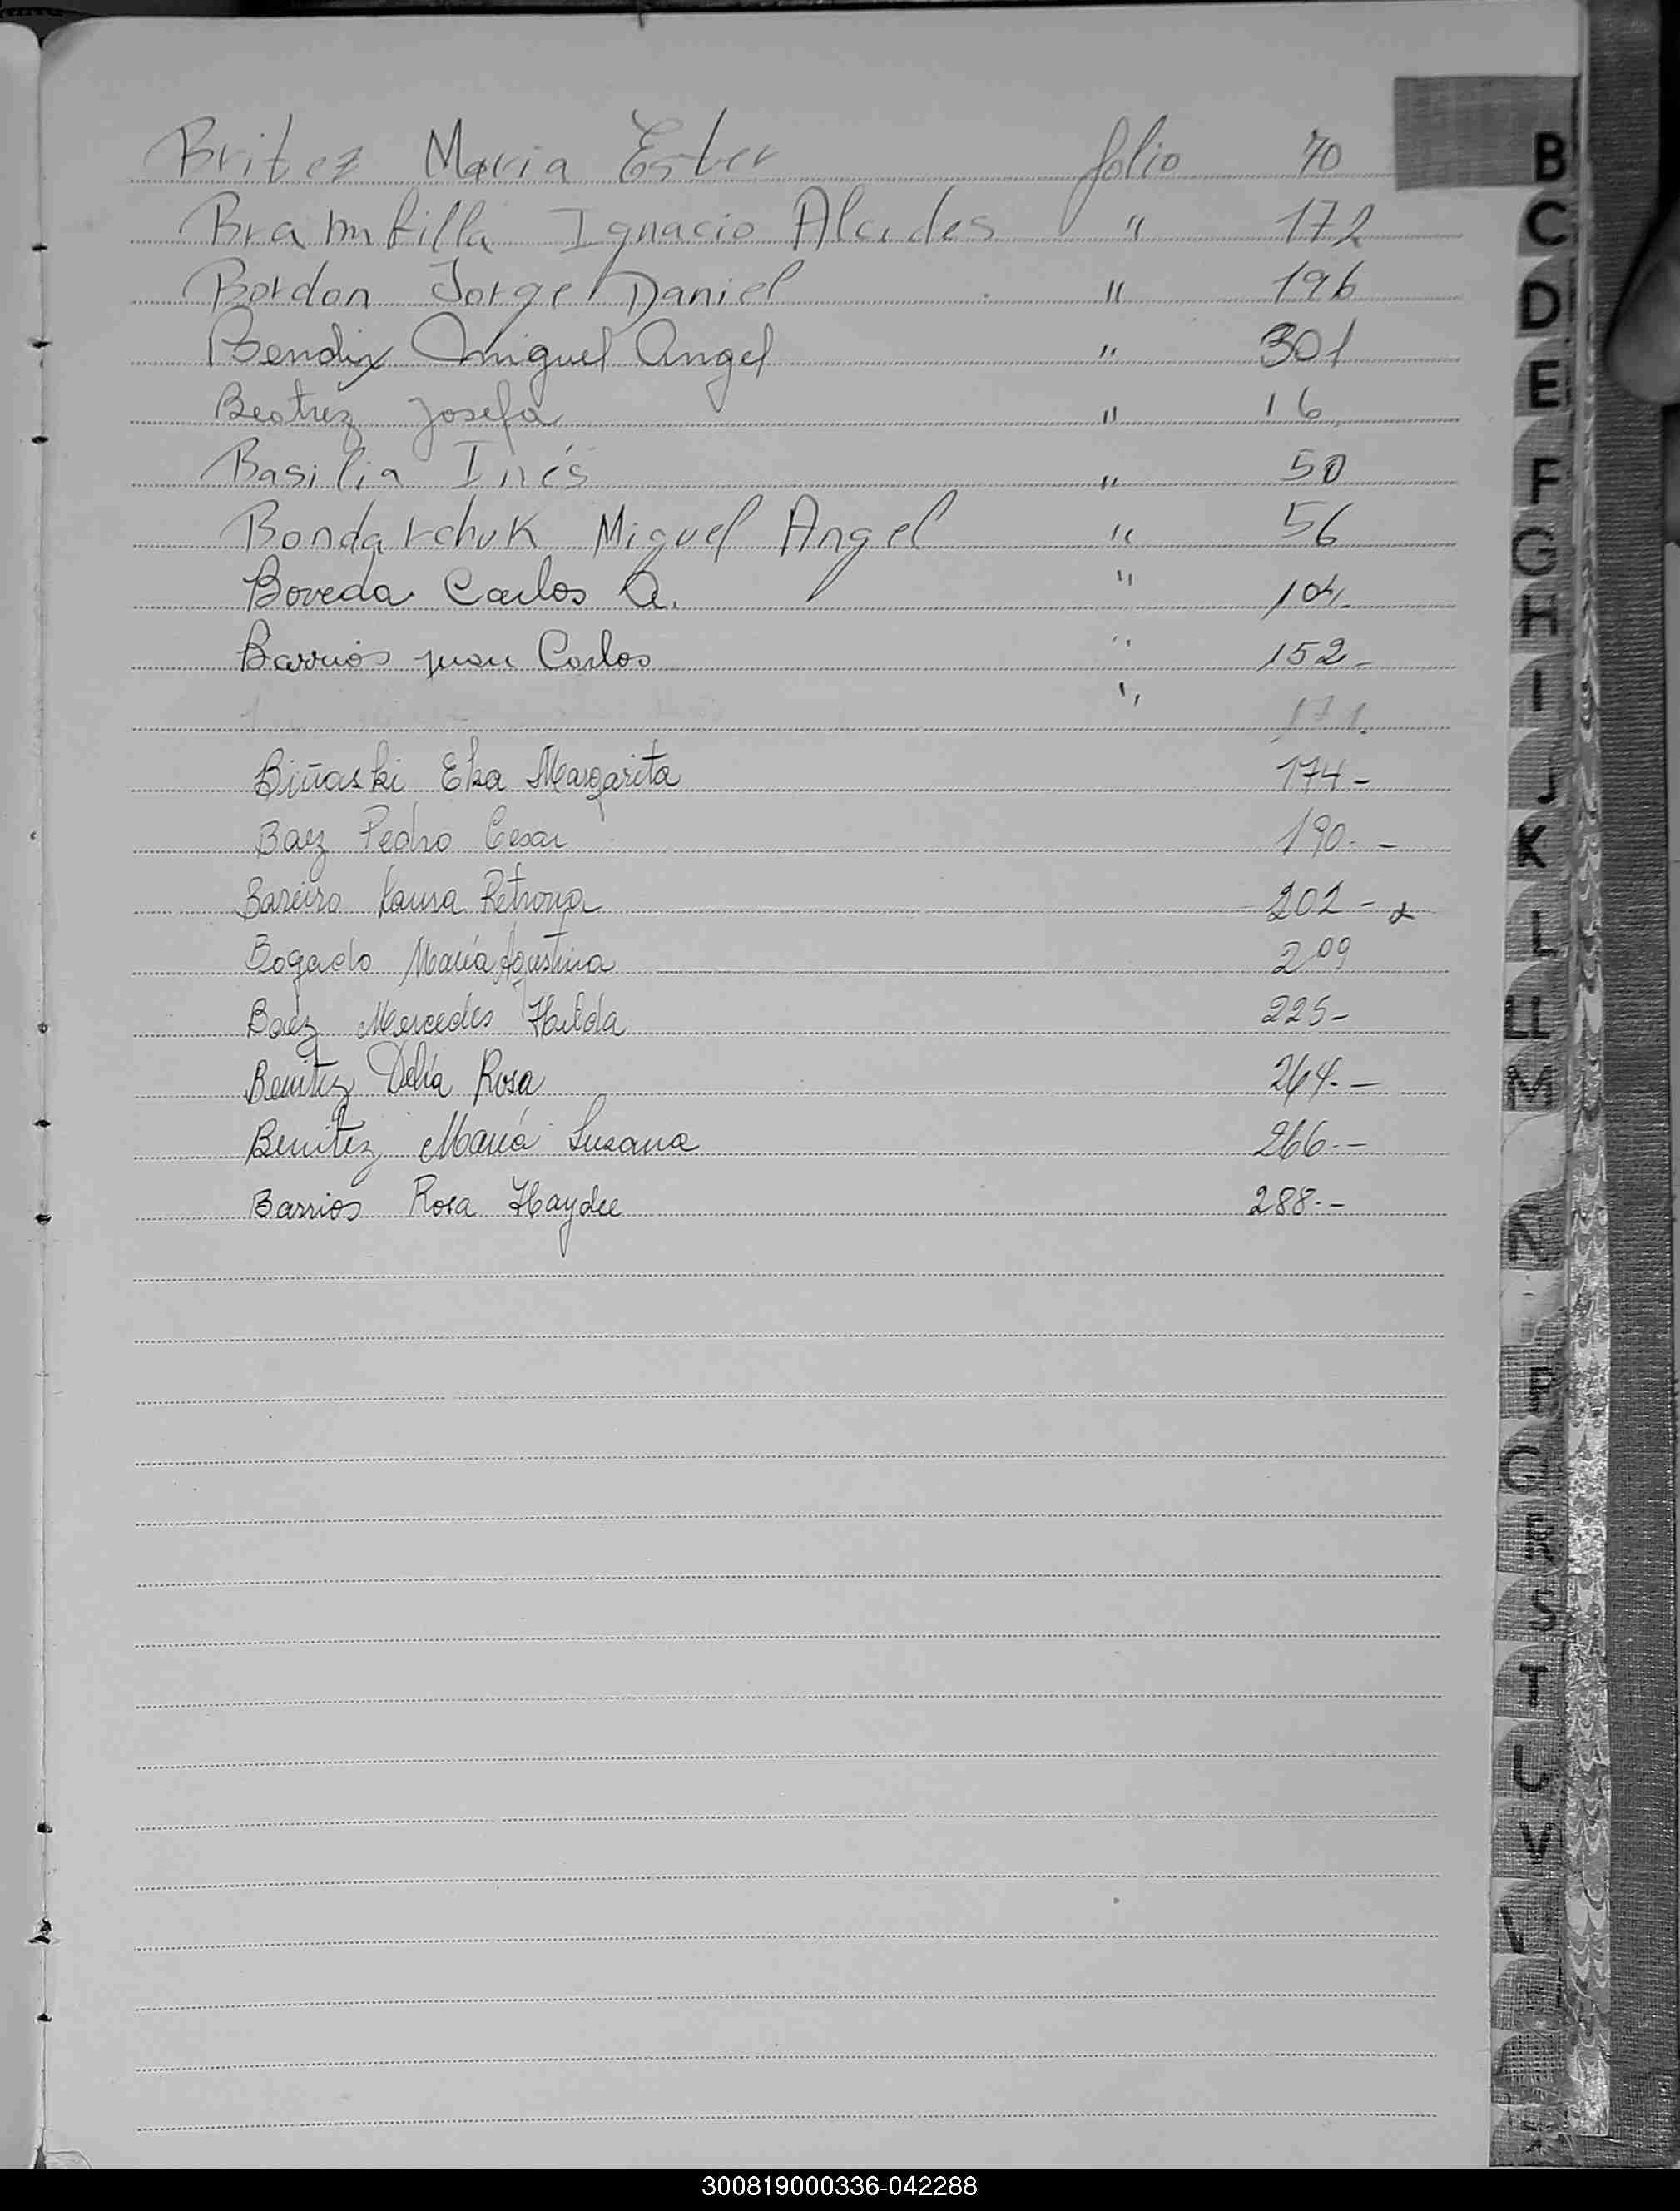 Britez Maria Ester folio 70
Brambilla Ignacio Alcides " 172
Bordon Jorge Daniel " 196
Bendix Miguel Angel " 301
Beatriz Josefa " 16
Basilia Inés " 50
Bondarchuk Miguel Angel " 56
Boveda Carlos A. " 104
Barrios Juan Carlos " 152-
" 171.
Biñaski Elsa Margarita 174-
Baez Pedro Cesar 190--
Bareiro Laura Petrona 202-
Bogado María Agustina 209
Baez Mercedes Hilda 225-
Benitez Delia Rosa 264.-
Benitez María Susana 266.-
Barrios Rosa Haydee 288.-
B
C
D
E
F
G
H
I
J
K
L
LL
M
N
P
Q
R
S
T
U
V
300819000336-042288